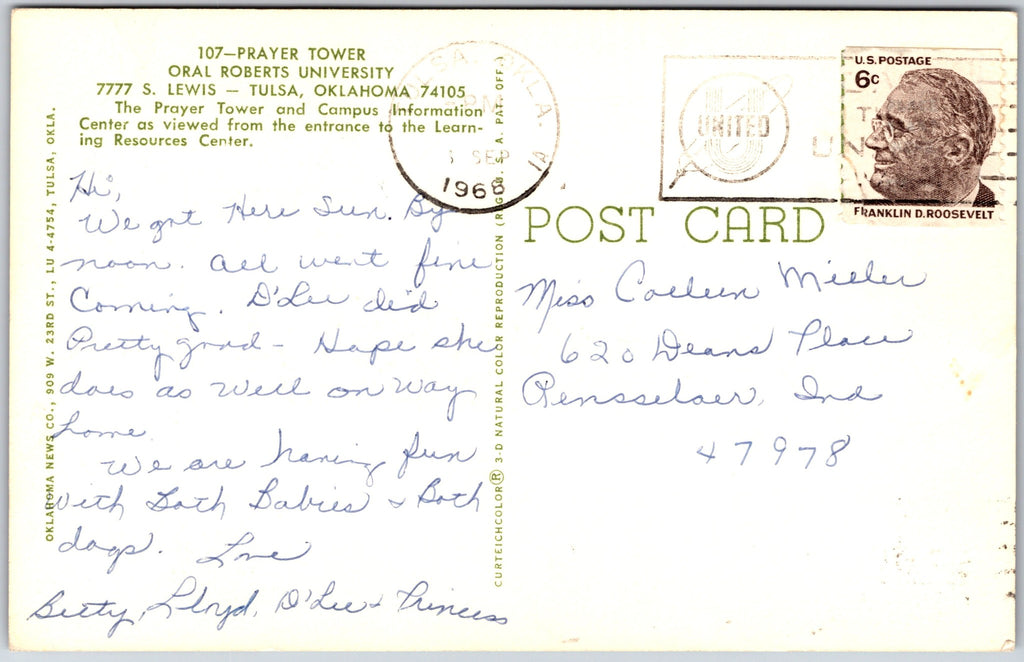 107—PRAYER TOWER
ORAL ROBERTS UNIVERSITY
7777 S. LEWIS — TULSA, OKLAHOMA 74105
The Prayer Tower and Campus Information
Center as viewed from the entrance to the Learn-
ing Resources Center.
Hi,
We got Here Sun. By
noon. All went fine
Coming. D'Lee did
Pretty good - Hope she
does as well on way
home.
We are having fun
with Both Babies & Both
dogs. Love
Betty, Lloyd, D'Lee & Princess
OKLAHOMA NEWS CO., 909 W. 23RD ST., LU 4-4754, TULSA, OKLA.
CURTEICHCOLOR® 3-D NATURAL COLOR REPRODUCTION (REG. U. S. A. PAT. OFF.)
TULSA, OKLA.
PM
SEP
1968
UNITED
U.S. POSTAGE
6c
FRANKLIN D. ROOSEVELT
POST CARD
Miss Colleen Miller
620 Deans Place
Rensselaer, Ind
47978